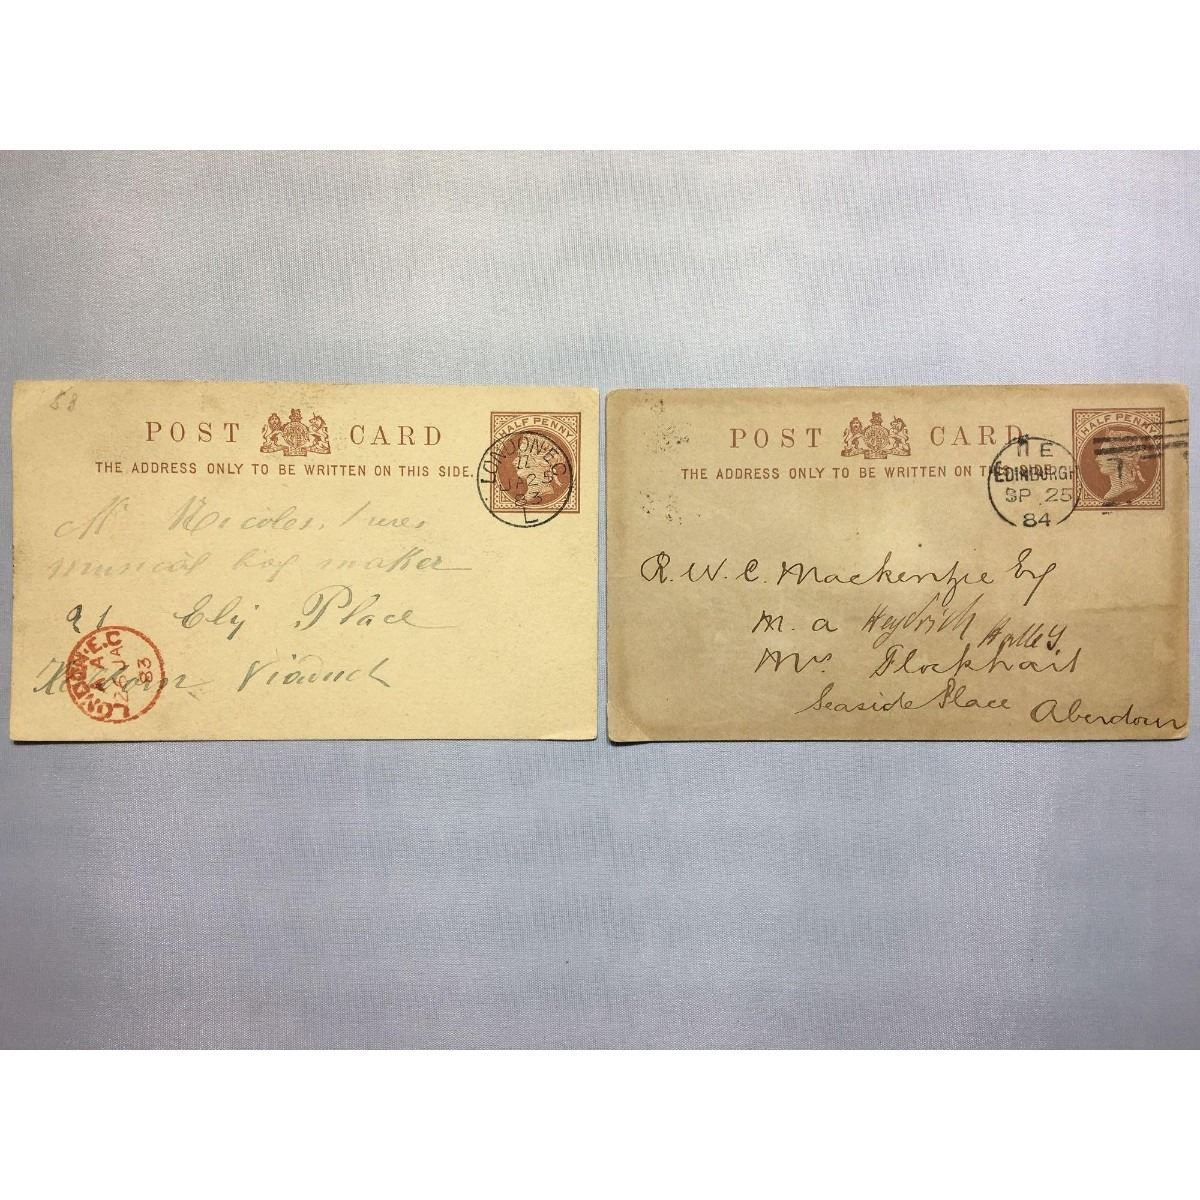 58
POST CARD
THE ADDRESS ONLY TO BE WRITTEN ON THIS SIDE.
HALF PENNY
LONDON·E.C
JA 25
83
L
Mr Nicoles
musical box maker
21 Ely Place
Holborn Viaduct
LONDON·E.C
AA
JA
83
POST CARD
THE ADDRESS ONLY TO BE WRITTEN ON THIS SIDE.
HALF PENNY
II E
EDINBURGH
SP 25
84
R. W. C. Mackenzie Esq
M. a
Mrs Flockhart
Seaside Place Aberdour